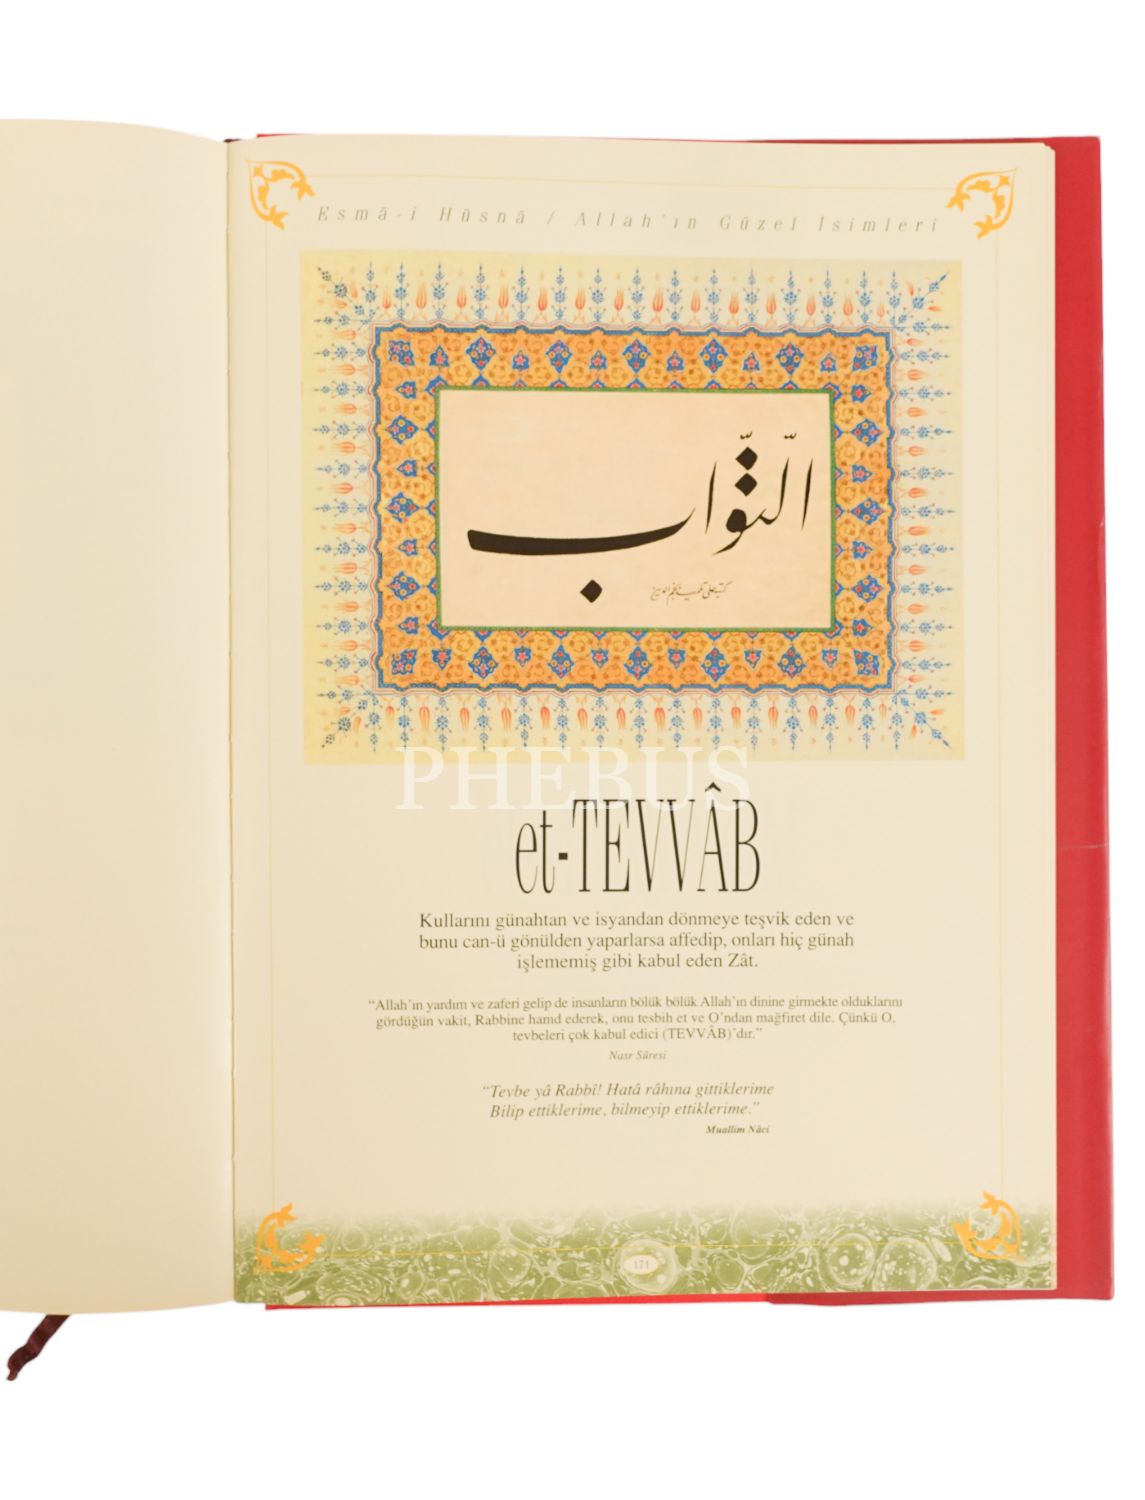 Esmâ-i Hüsnâ / Allah'ın Güzel İsimleri
التّوّاب
PHEBUS
et-TEVVÂB
Kullarını günahtan ve isyandan dönmeye teşvik eden ve
bunu can-ü gönülden yaparlarsa affedip, onları hiç günah
işlememiş gibi kabul eden Zât.
“Allah’ın yardım ve zaferi gelip de insanların bölük bölük Allah’ın dinine girmekte olduklarını
gördüğün vakit, Rabbine hamd ederek, onu tesbih et ve O’ndan mağfiret dile. Çünkü O,
tevbeleri çok kabul edici (TEVVÂB)’dır.”
Nasr Sûresi
“Tevbe yâ Rabbî! Hatâ râhına gittiklerime
Bilip ettiklerime, bilmeyip ettiklerime.”
Muallim Nâci
171